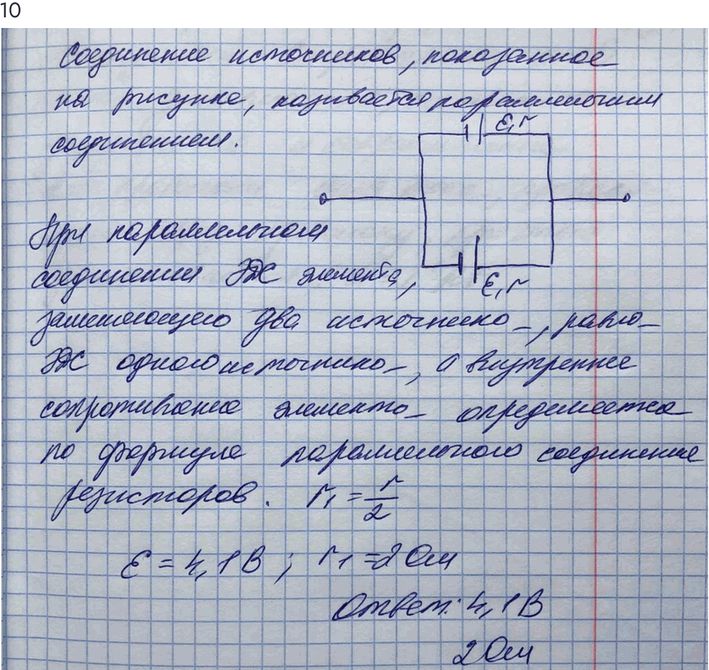 10
Соединение источников, показанное
на рисунке, называется параллельным
соединением.
ε, r
При параллельном
соединении ЭДС элемента,
ε, r
заменяющего два источника, равна
ЭДС одного источника, а внутреннее
сопротивление элемента определяется
по формуле параллельного соединение
резисторов. r₁ = r/2
ε = 4,1 В ; r₁ = 2 Ом
Ответ: 4,1 В
2 Ом